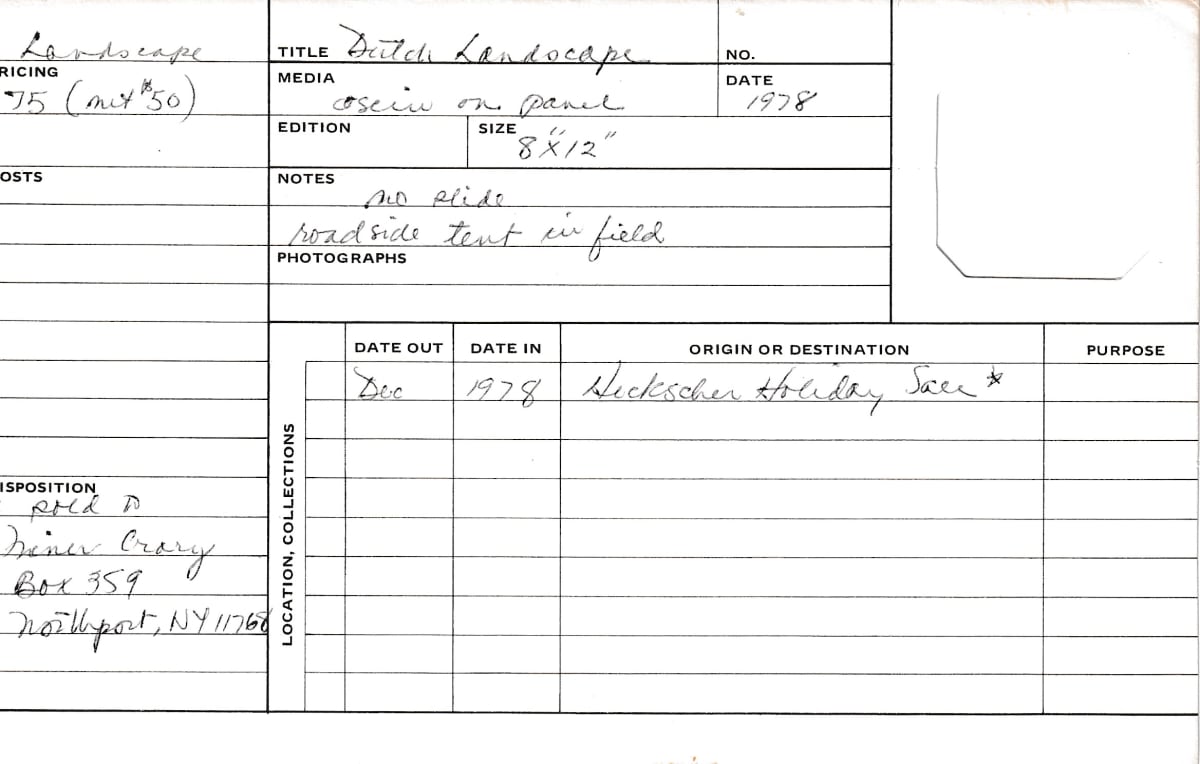 Landscape
RICING
75 (net $50)
OSTS
ISPOSITION
sold to
Miner Crary
Box 359
Northport, NY 11768
TITLE Dutch Landscape
NO.
MEDIA
casein on panel
DATE
1978
EDITION
SIZE 8"X12"
NOTES
no slide
roadside tent in field
PHOTOGRAPHS
LOCATION, COLLECTIONS
DATE OUT DATE IN ORIGIN OR DESTINATION PURPOSE
Dec 1978 Heckscher Holiday Sale *